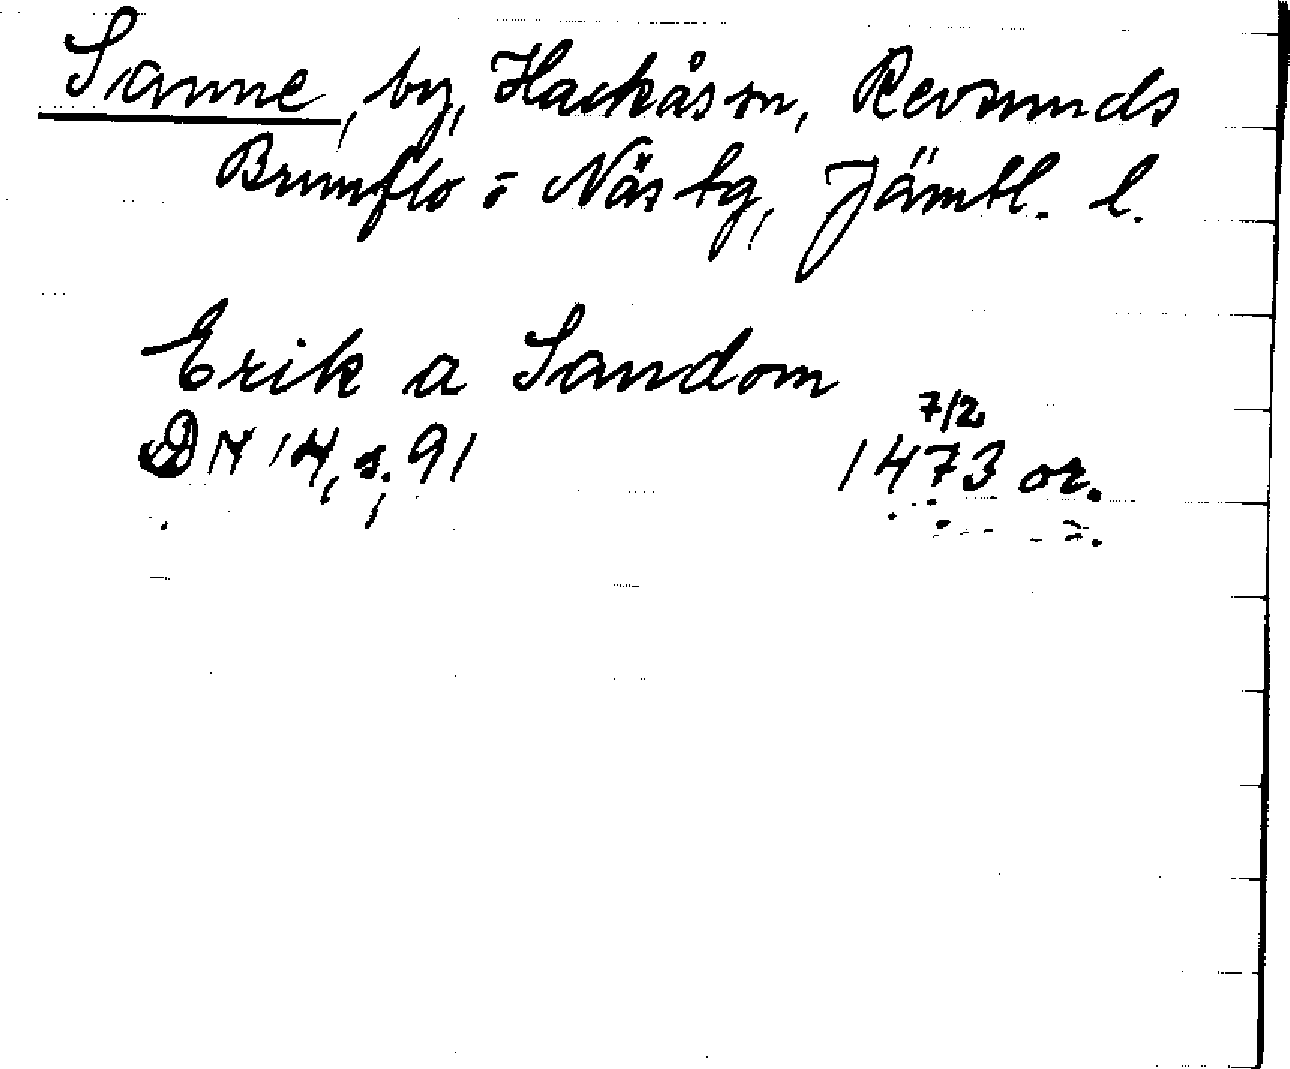 Sanne, by, Hackås sn, Revsunds
Brunflo o Näs tg, Jämtl. l.
Erik a Sandom
7/2
DN 14, s. 91 1473 or.